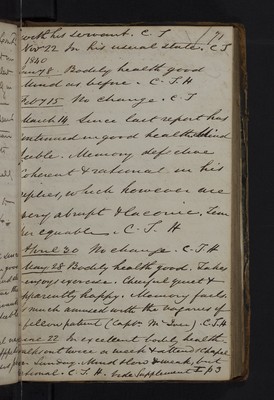 with his servant. C. T
191
Nov 22 In his usual state. C T
1840
8 Bodily health good
Mind as before. C. T. H
Feby 15 No change. C. T
March 14. Since last report has
continued in good health. Mind
feeble. Memory defective
Coherent & rational in his
replies, which however are
very abrupt & laconic. Tem
per equable. C. T. H
April 30 No change. C. T. H
May 28 Bodily health good. Takes
enjoys exercise. Cheerful quiet &
apparently happy. Memory fails.
much amused with the vagaries of
fellow patient (Capt. Mc ). C. T. H
22 In excellent bodily health.
out twice a week & attends Chapel
Sunday. Mind slow & weak, but
rational. C. T. H. Vide Supplement to p 3